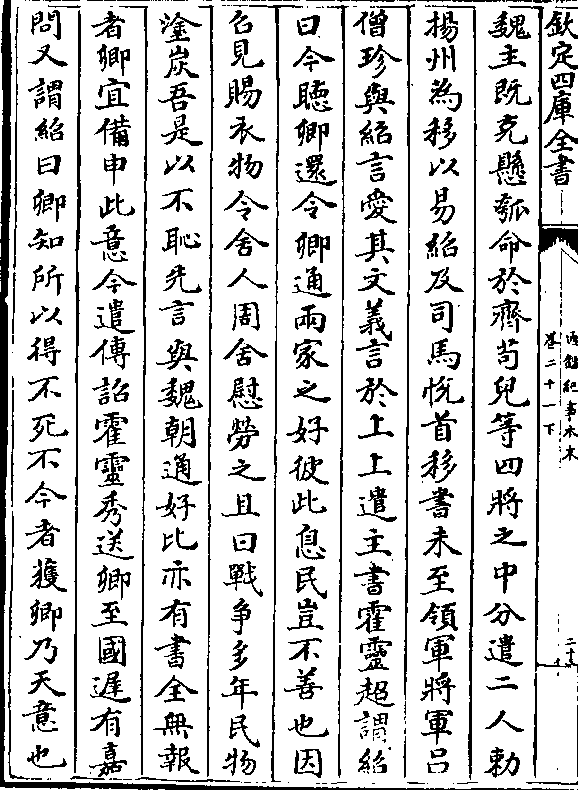 欽定四庫全書
通鑑紀事本末
卷二十一下
二十
魏主既克懸瓠命於齊苟兒等四將之中分遣二人勅
揚州為移以易紹及司馬悅首移書未至領軍將軍吕
僧珍與紹言愛其文義言於上上遣主書霍靈超謂紹
曰今聽卿還令卿通兩家之好彼此息民豈不善也因
召見賜衣物令舍人周舍慰勞之且曰戰爭多年民物
塗炭吾是以不恥先言與魏朝通好比亦有書全無報
者卿宜備申此意今遣傳詔霍靈秀送卿至國遲有嘉
問又謂紹曰卿知所以得不死不今者獲卿乃天意也